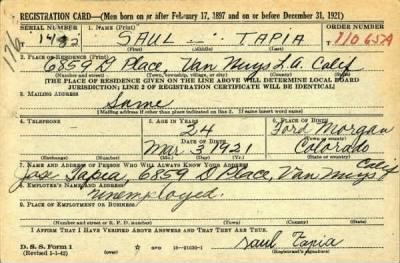 REGISTRATION CARD—(Men born on or after February 17, 1897 and on or before December 31, 1921)
SERIAL NUMBER 1. NAME (Print) ORDER NUMBER
176 1432 SAUL — TAPIA 11065A
(First) (Middle) (Last)
2. PLACE OF RESIDENCE (Print)
6859 D Place, Van Nuys L.A. Calif
(Number and street) (Town, township, village, or city) (County) (State)
[THE PLACE OF RESIDENCE GIVEN ON THE LINE ABOVE WILL DETERMINE LOCAL BOARD
JURISDICTION; LINE 2 OF REGISTRATION CERTIFICATE WILL BE IDENTICAL]
3. MAILING ADDRESS
Same
[Mailing address if other than place indicated on line 2. If same insert word same]
4. TELEPHONE 5. AGE IN YEARS 6. PLACE OF BIRTH
24 Ford Morgan
DATE OF BIRTH (Town or county)
Mar 3 1921 Colorado
(Exchange) (Number) (Mo.) (Day) (Yr.) (State or country)
7. NAME AND ADDRESS OF PERSON WHO WILL ALWAYS KNOW YOUR ADDRESS
Jose Tapia, 6859 D Place, Van Nuys Calif
8. EMPLOYER'S NAME AND ADDRESS
Unemployed.
9. PLACE OF EMPLOYMENT OR BUSINESS
(Number and street or R. F. D. number) (Town) (County) (State)
I AFFIRM THAT I HAVE VERIFIED ABOVE ANSWERS AND THAT THEY ARE TRUE.
D. S. S. Form 1
(Revised 1-1-42) GPO 16—21630-1
Saul Tapia
(Registrant's signature)